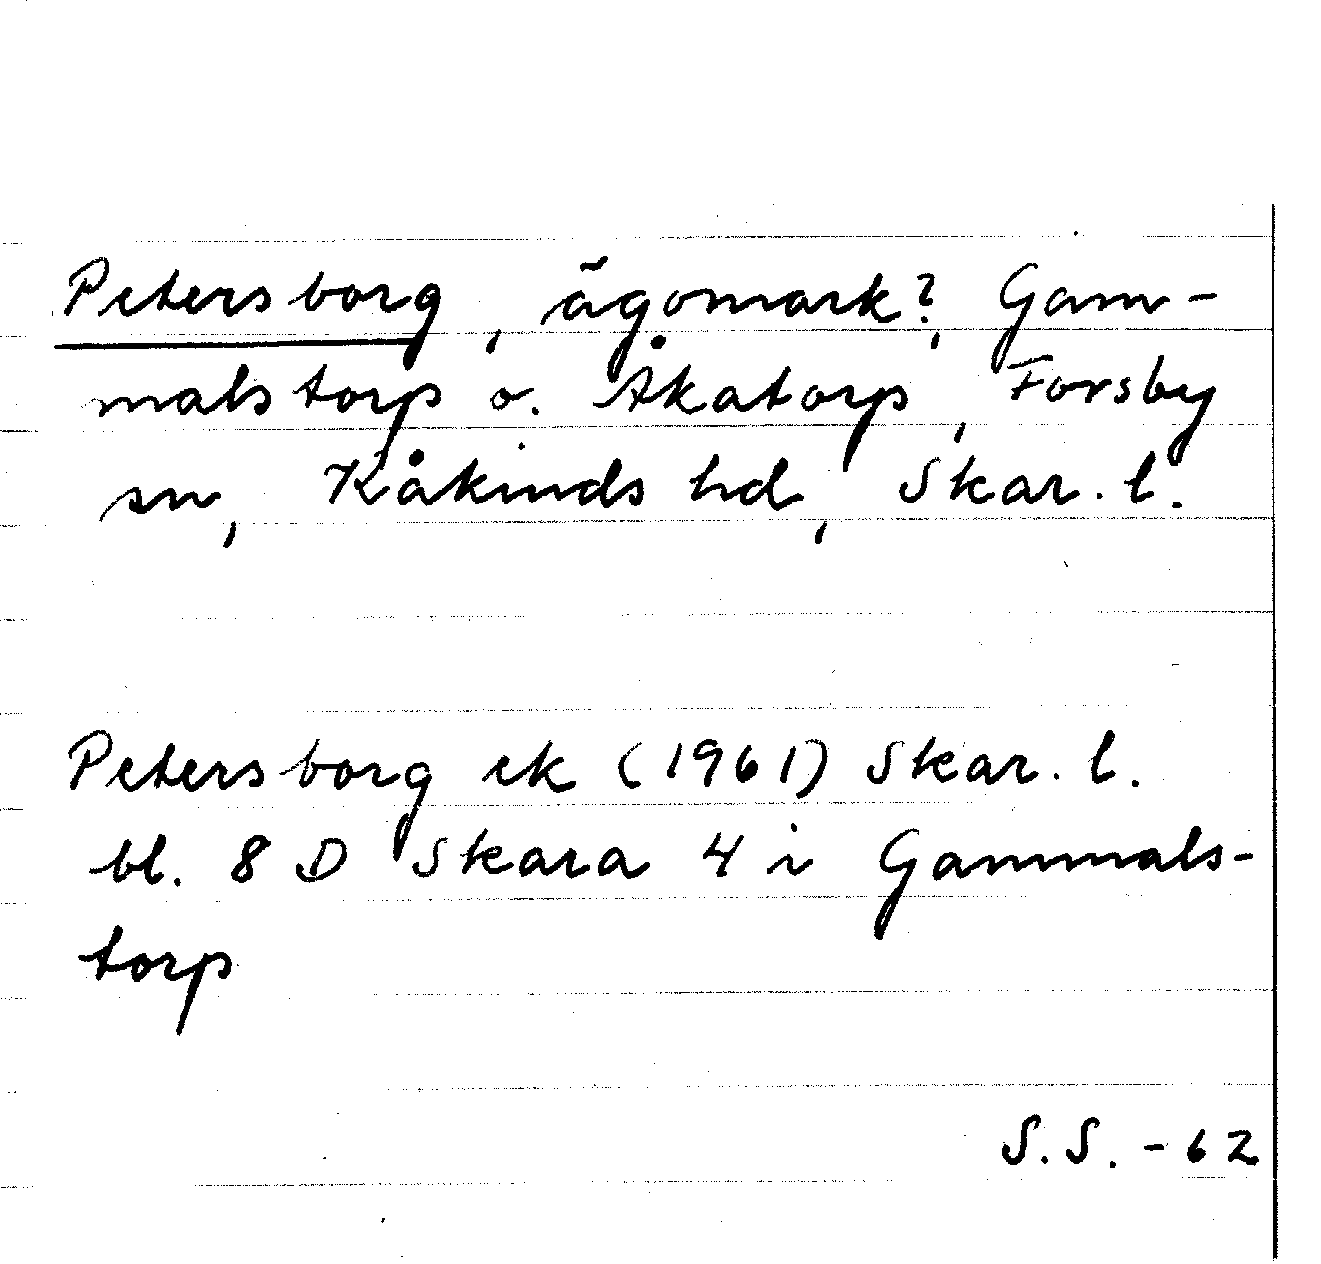 Petersborg, ägomark?, Gam-
malstorp o. Åkatorp, Forsby
sn, Kåkinds hd, Skar. l.
Petersborg ek (1961) Skar. l.
bl. 8 D Skara 4 i Gammals-
torp
S.S. -62